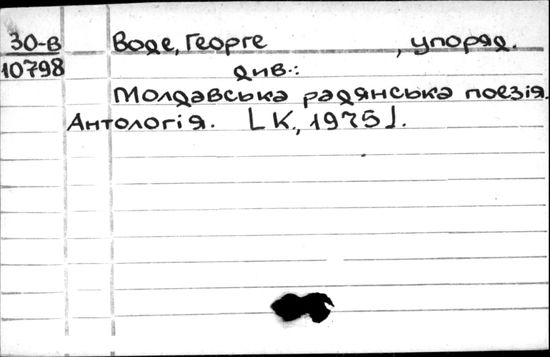 30-в Воде, Георге , упоряд.
10798 див.:
Молдавська радянська поезія.
Антологія. [К., 1975].